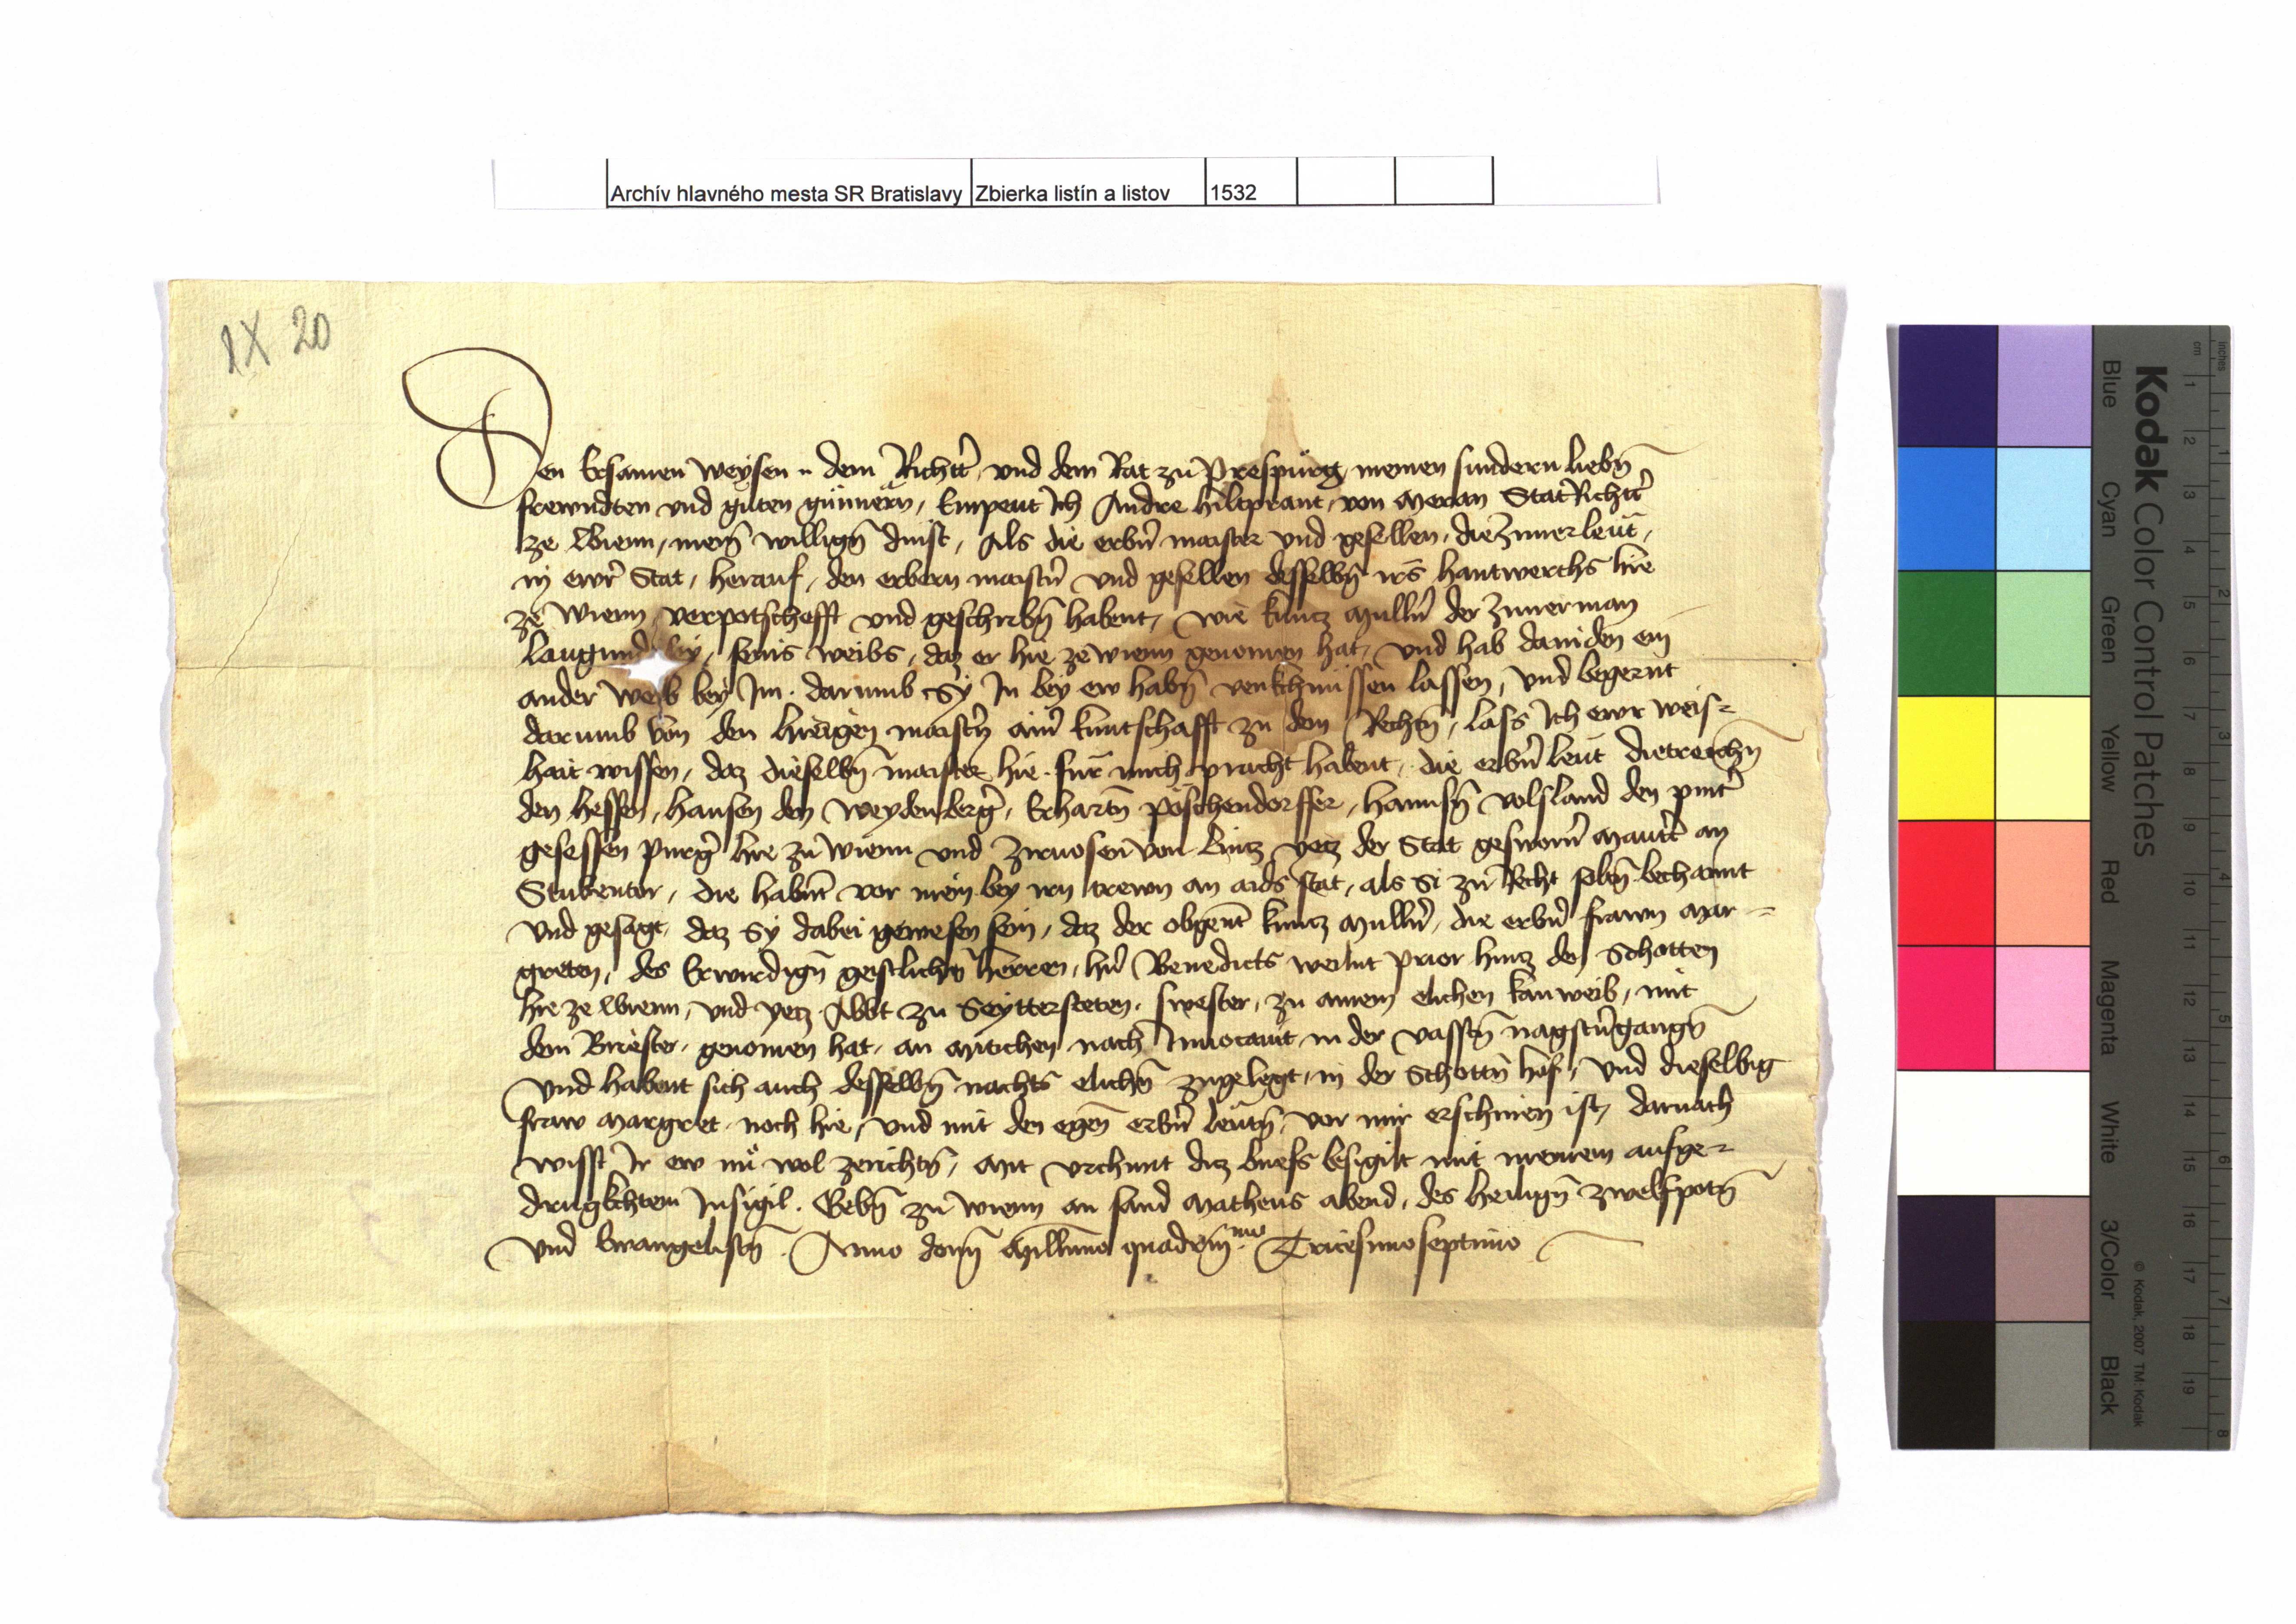 Archív hlavného mesta SR Bratislavy Zbierka listín a listov 1532
IX 20
Den Ersamen weysen dem Richtt̄ und dem Rat zu Prespurg meinen sundern liebn̄
frewndten vnd guten gunnern, Empeut Ich Andre hiltprant von Meran StatRichtt̄
ze Wienn, meyn̄ willign̄ dinst, Als die erbn̄ maister vnd gesellen, die Zimerleut,
in ewr̄ Stat, herauf, den erbern maistn̄ vnd gesellen desselbn̄ irs hantwerchs hie
ze wienn verpotschefft vnd geschribn̄ habent, wie kuncz mulln̄ der Zimerman
laugund seins weibs, daz er hie ze wienn genomen hat, vnd hab daniden ein
ander weib bey Im. darumb Sy In bey ew habn̄ venkchnussen lassen, vnd begernt
darumb von den hieigen maistn̄ ain̄ kuntschafft zu dem Rechtn̄, lass Ich ewr weis-
hait wissen, daz dieselbn̄ maister hie fur mich pracht habent, die erbn̄ leut dietreichn̄
den hessen, hansen den weydenberḡ, Erhartn̄ pöschendorffer, hannsn̄ volsland den pint̄
gesessen purḡ hie zu wienn vnd von lincz yecz der Stat gesworn̄ mautt̄ an
Stubentor, die habnt vor mein bey irn trewn an aids stat, als si zu Recht solln̄ bechannt
vnd gesagt, daz Sy dabei gewesen sein, daz der obgent kuncz mulln̄, die erbn̄ frawn Mar-
greten, des Erwirdign̄ geistlichn̄ herren, hn̄ Benedicts weilnt prior hincz den Schotten
hie ze Wienn, vnd yecz Abbt zu Seyttersteten, swester, zu ainem elichen kanweib, mit
dem Briester, genomen hat, an Mitichen nach Inuocauit in der vasstn̄ nagstn̄gangn̄
vnd habent sich auch desselbn̄ nachts elichn̄ zugelegt, in der Schottn̄ hof, vnd dieselbig
fraw Margret noch hie, vnd mit den egen̄ erbn̄ leutn̄, vor mir erschinen ist, darnach
wisst Ir ew nu wol zerichtn̄, Mit vrchunt dicz briefs besigilt mit meinem aufge-
drugkchtem Insigil. Gebn̄ zu wienn an sand Matheus abend, des heilign̄ zwelfpotn̄
vnd Ewangelistn̄. Anno domn̄ Millimo quadrin̄mo Tricesimoseptimo
Kodak Color Control Patches
Blue Cyan Green Yellow Red Magenta White 3/Color Black
© Kodak, 2007 TM: Kodak
inches 1 2 3 4 5 6 7 8
cm 1 2 3 4 5 6 7 8 9 10 11 12 13 14 15 16 17 18 19